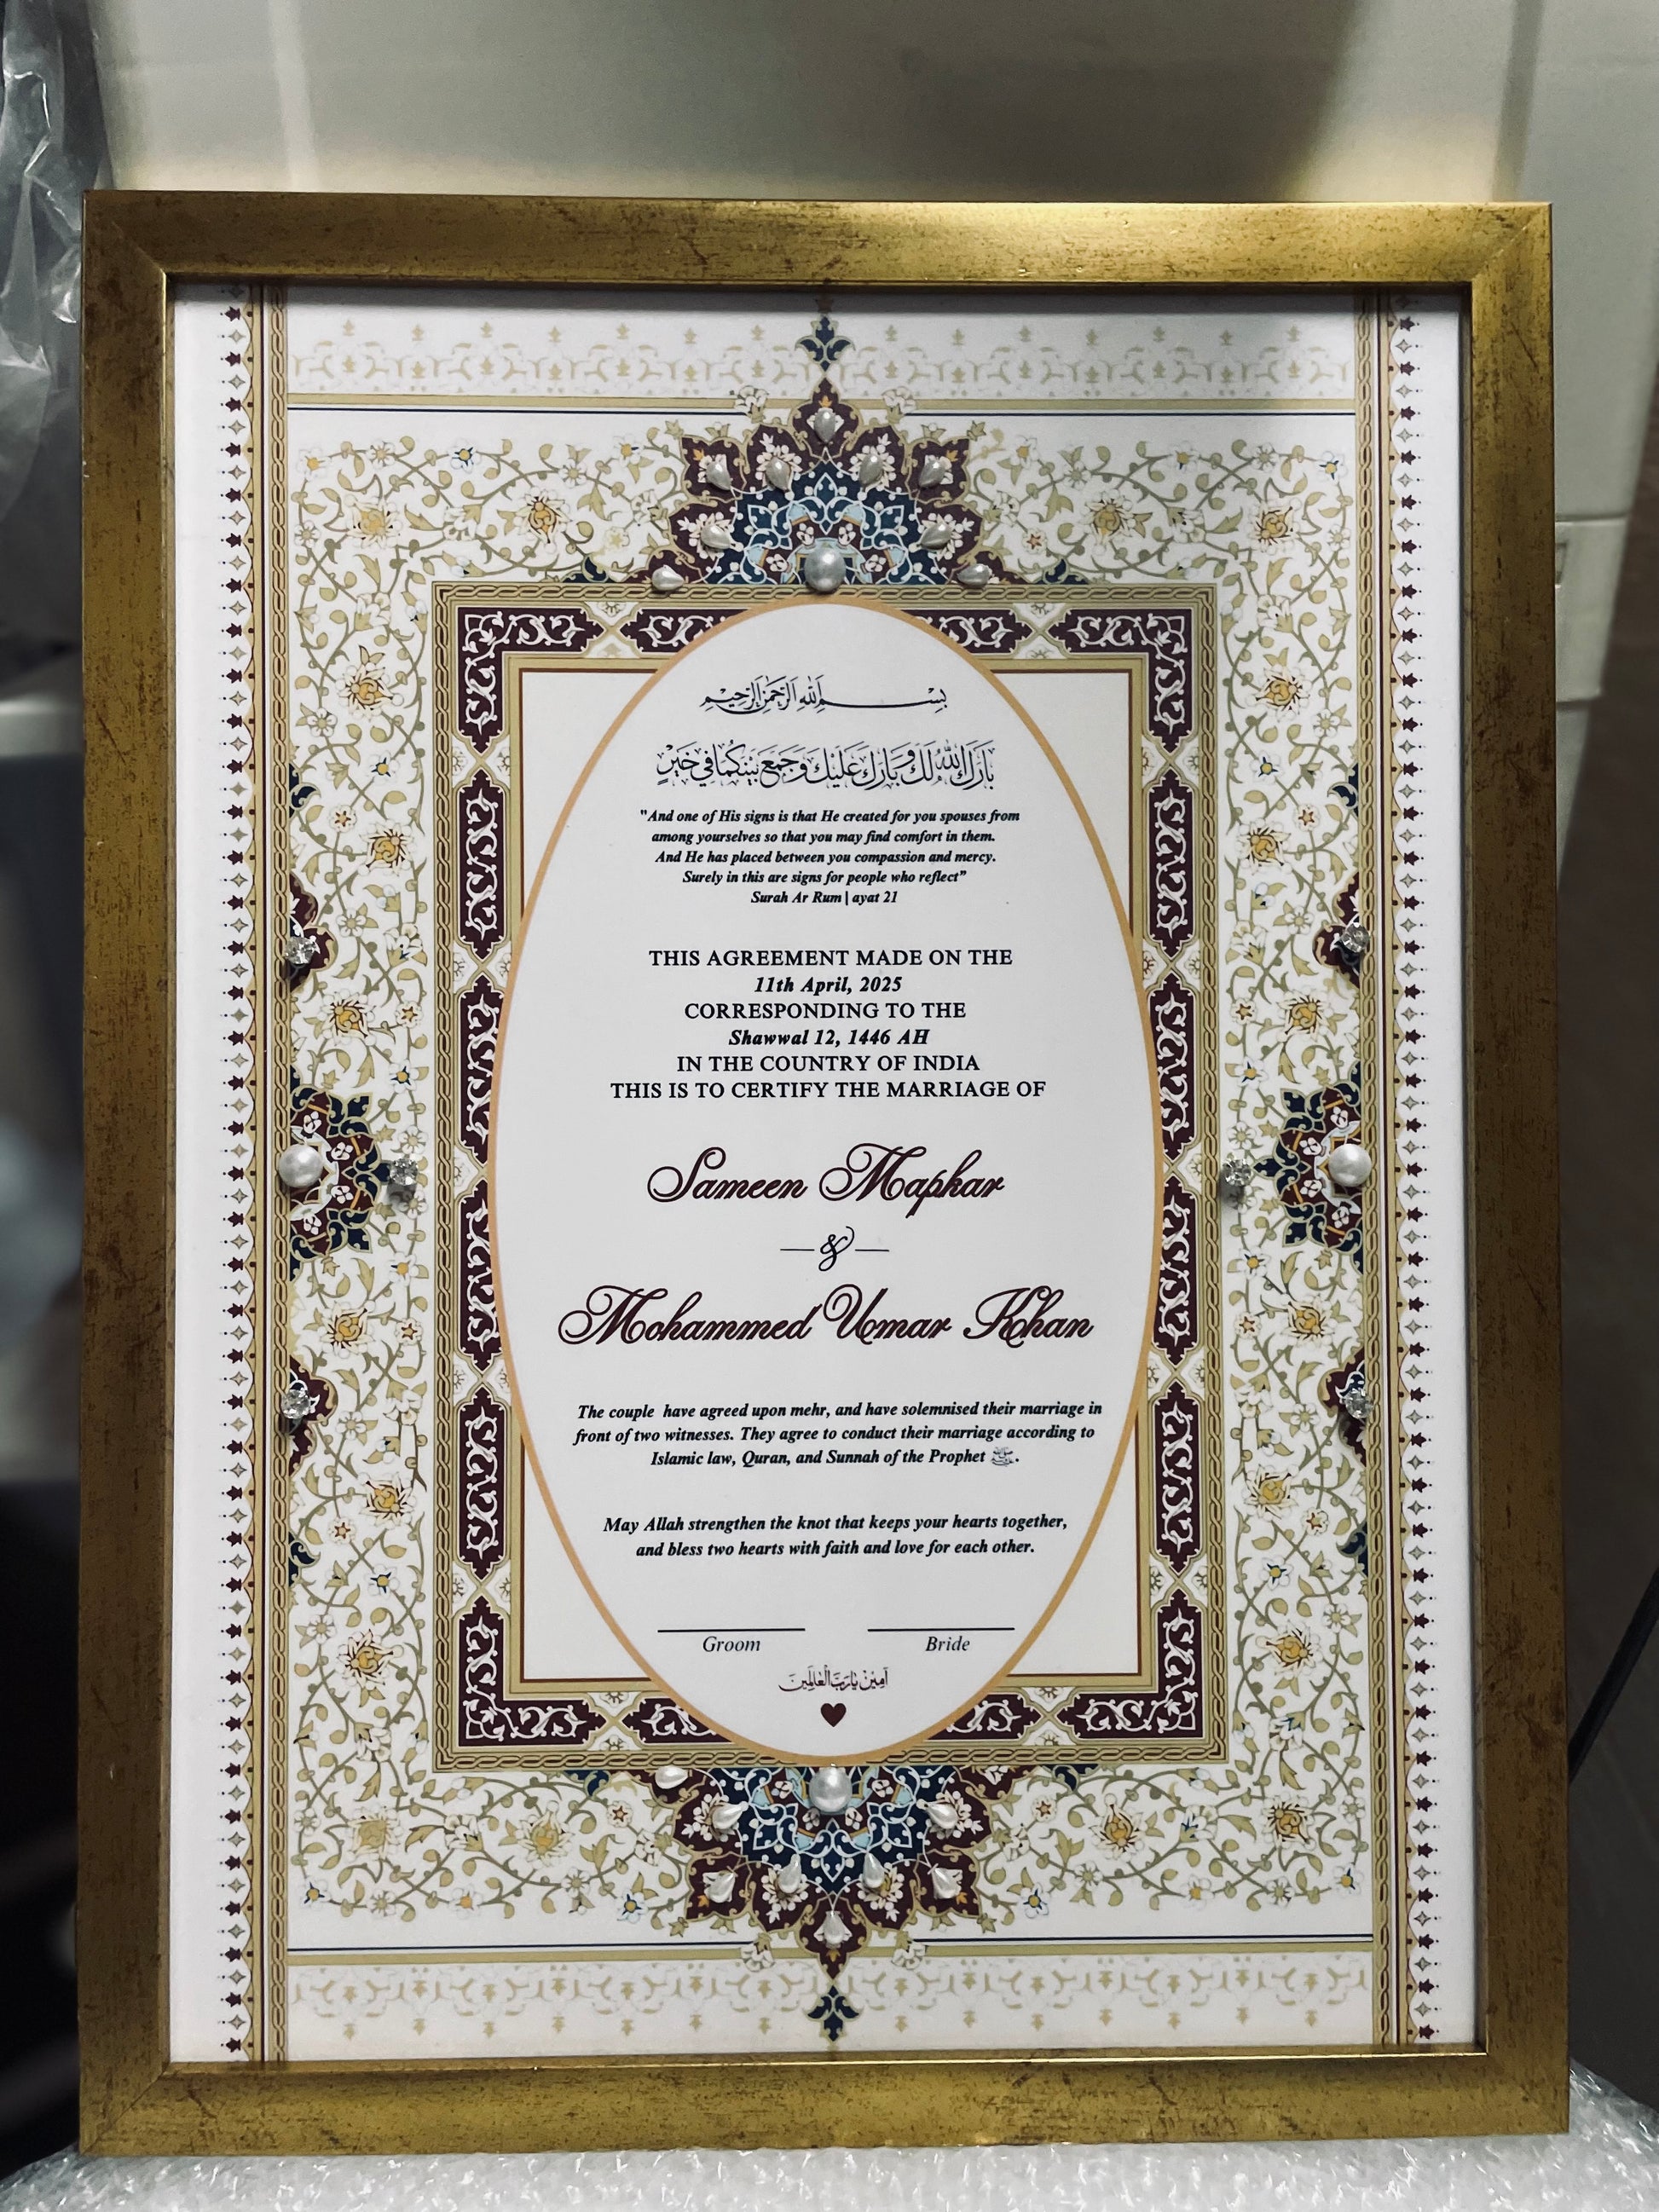 بِسْـــــــمِ اللهِ الرَّحْمٰنِ الرَّحِيْمِ
بَارَكَ اللهُ لَكَ وَبَارَكَ عَلَيْكَ وَجَمَعَ بَيْنَكُمَا فِي خَيْرٍ
"And one of His signs is that He created for you spouses from
among yourselves so that you may find comfort in them.
And He has placed between you compassion and mercy.
Surely in this are signs for people who reflect”
Surah Ar Rum | ayat 21
THIS AGREEMENT MADE ON THE
11th April, 2025
CORRESPONDING TO THE
Shawwal 12, 1446 AH
IN THE COUNTRY OF INDIA
THIS IS TO CERTIFY THE MARRIAGE OF
Sameen Mapkar
&
Mohammed Umar Khan
The couple have agreed upon mehr, and have solemnised their marriage in
front of two witnesses. They agree to conduct their marriage according to
Islamic law, Quran, and Sunnah of the Prophet ﷺ.
May Allah strengthen the knot that keeps your hearts together,
and bless two hearts with faith and love for each other.
Groom Bride
آمِيْنَ يَارَبَّ الْعَالَمِيْنَ